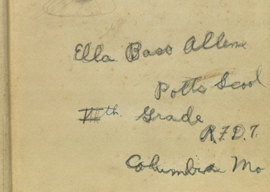 Ella Bass Allene
Potts Scool
VIIth. Grade
R.F.D. 7.
Columbia Mo